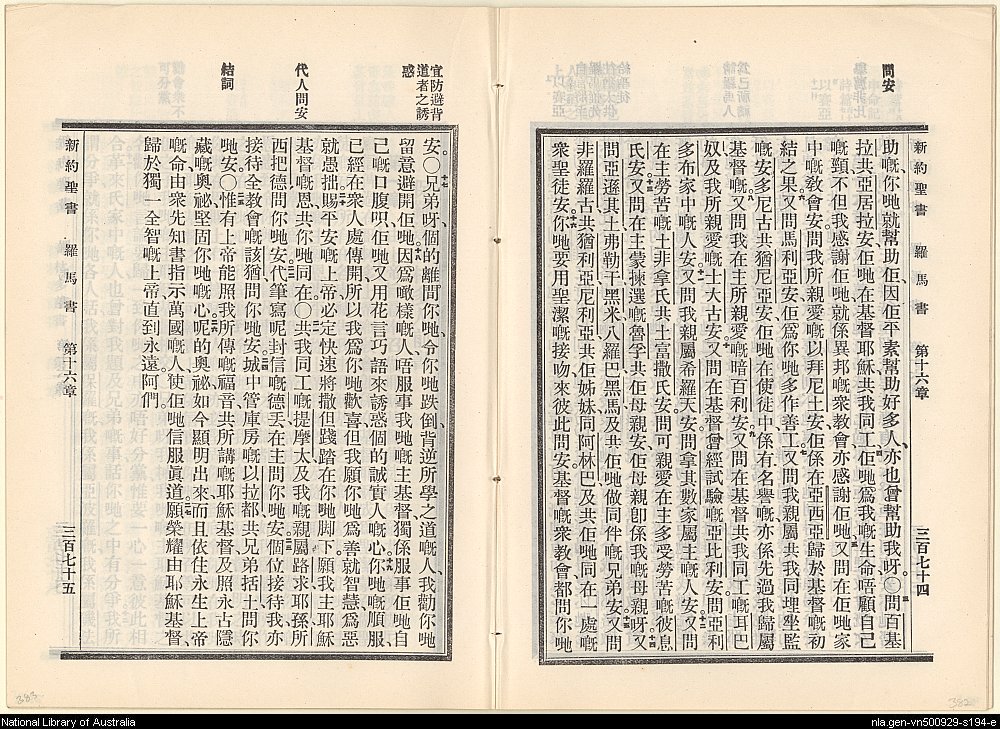 問安
新約聖書 羅馬書 第十六章 三百七十四
助嘅、你哋就幫助佢、因佢平素幫助好多人、亦也曾幫助我呀。○三問百基
拉共亞居拉安、佢哋在基督耶穌共我同工、四佢哋爲我嘅生命唔顧自己
嘅頸、不但我感謝佢哋、就係異邦嘅衆教會亦感謝佢哋。五又問在佢哋家
中嘅敎會安、問我所親愛嘅以拜尼土安、佢係在亞西亞歸於基督嘅初
結之果。六又問馬利亞安、佢爲你哋多作善工。七又問我親屬共我同埋坐監
嘅安多尼古共猶尼亞安、佢哋在使徒中係有名譽嘅、亦係先過我歸屬
基督嘅。八又問我在主所親愛嘅暗百利安。九又問在基督共我同工嘅耳巴
奴及我所親愛嘅士大古安。十又問在基督曾經試驗嘅亞比利安、問亞利
多布家中嘅人安。十一又問我親屬希羅天安、問拿其數家屬主嘅人安。十二又問
在主勞苦嘅土非拿氏共土富撒氏安、問可親愛在主多受勞苦嘅彼息
氏安。十三又問在主蒙揀選嘅魯孚共佢母親安、佢母親卽係我嘅母親呀。十四又
問亞遜其土、弗勒干、黑米、八羅巴、黑馬、及共佢哋做同伴嘅兄弟安。十五又問
非羅羅古共猶利亞、尼利亞共佢姊妹、同阿林巴及共佢哋同在一處嘅
衆聖徒安。十六你哋要用聖潔嘅接吻來彼此問安、基督嘅衆教會都問你哋
宜防避背道者之誘惑
代人問安
結詞
安。○十七兄弟呀、個的離間你哋、令你哋跌倒、背逆所學之道嘅人、我勸你哋
留意避開佢哋。十八因爲噉樣嘅人、唔服事我哋嘅主基督、獨係服事佢哋自
己嘅口腹呮、佢哋又用花言巧語來誘惑個的誠實人嘅心。十九你哋嘅順服、
已經在衆人處傳開、所以我爲你哋歡喜、但我願你哋爲善就智慧、爲惡
就愚拙。二十賜平安嘅上帝、必定快速將撒但踐踏在你哋脚下、願我主耶穌
基督嘅恩、共你哋同在。○二一共我同工嘅提摩太、及我嘅親屬路求、耶孫、所
西把德、問你哋安。二二代筆寫呢封信嘅德丟、在主問你哋安。二三個位接待我、亦
接待全教會嘅該猶、問你哋安。城中管庫房嘅以拉都、共兄弟括土、問你
哋安。○二五惟有上帝能照我所傳嘅福音、共所講嘅耶穌基督、及照永古隱
藏嘅奧祕、堅固你哋嘅心。二六呢的奧祕如今顯明出來、而且依住永生上帝
嘅命、由衆先知書指示萬國嘅人、使佢哋信服眞道。二七願榮耀由耶穌基督、
歸於獨一全智嘅上帝、直到永遠、阿們。
新約聖書 羅馬書 第十六章 三百七十五
383
382
National Library of Australia
nla.gen-vn500929-s194-e